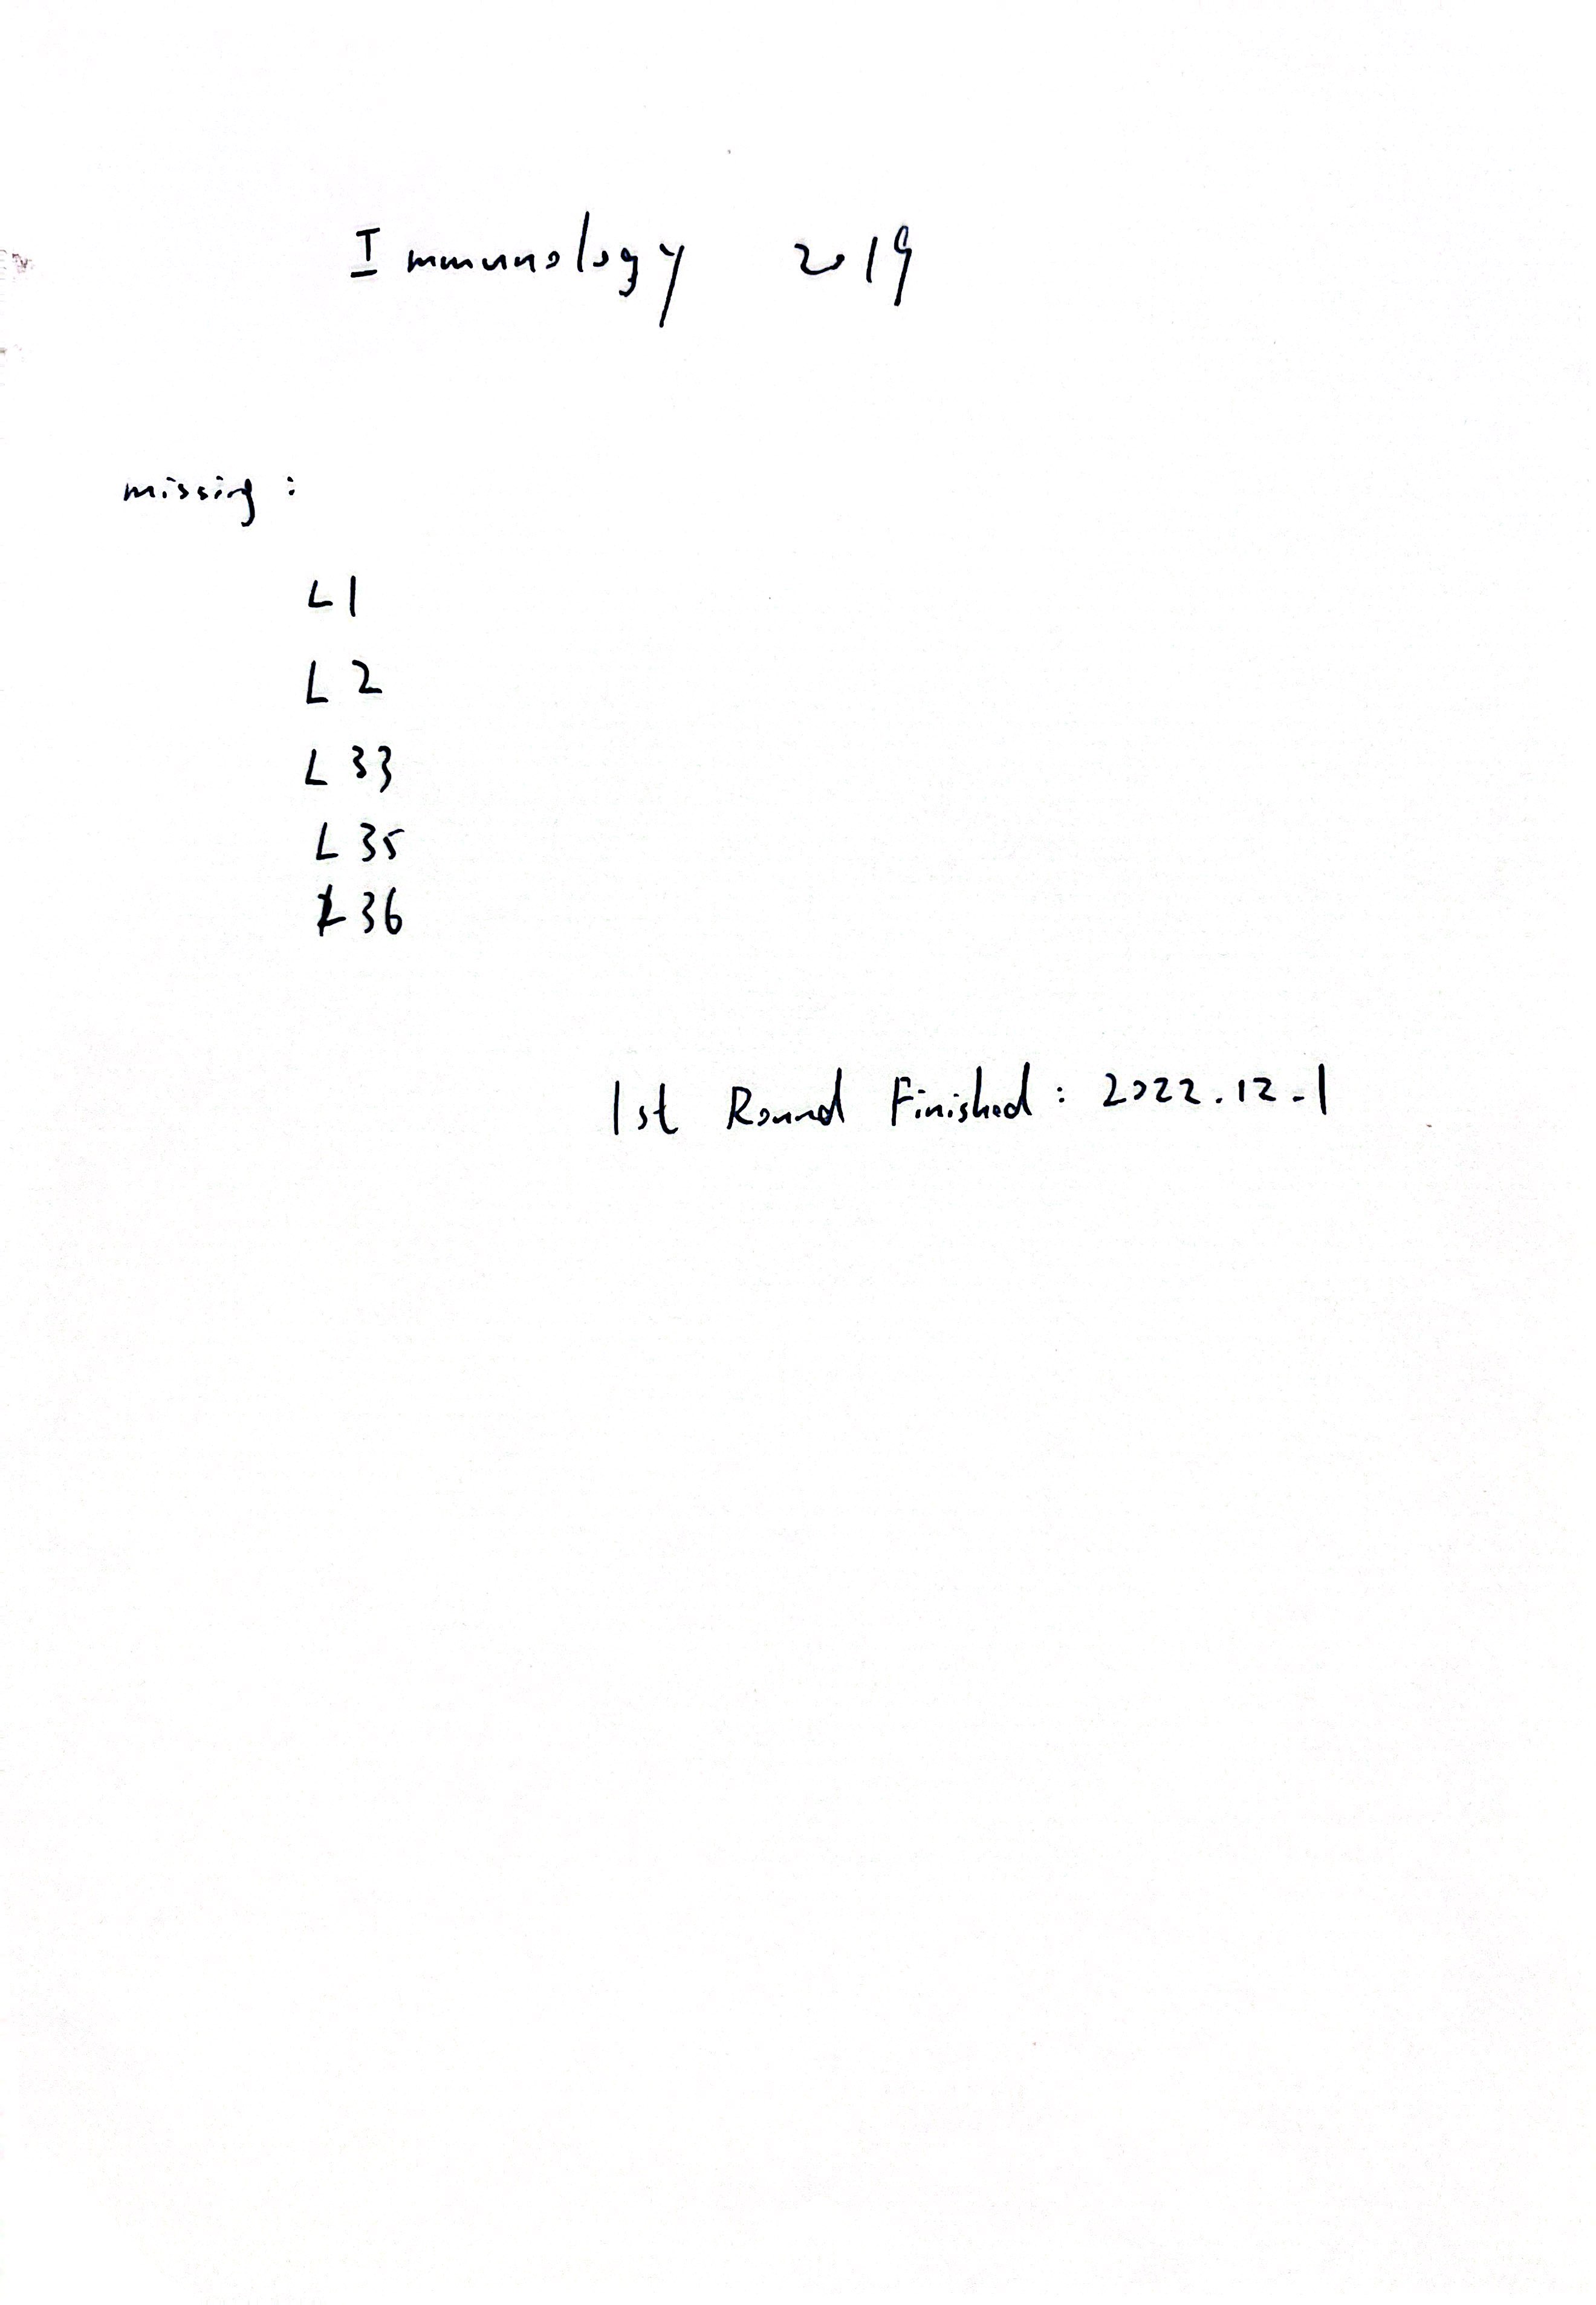 Immunology 2019
missing:
L1
L2
L33
L35
L36
1st Round Finished: 2022.12.1